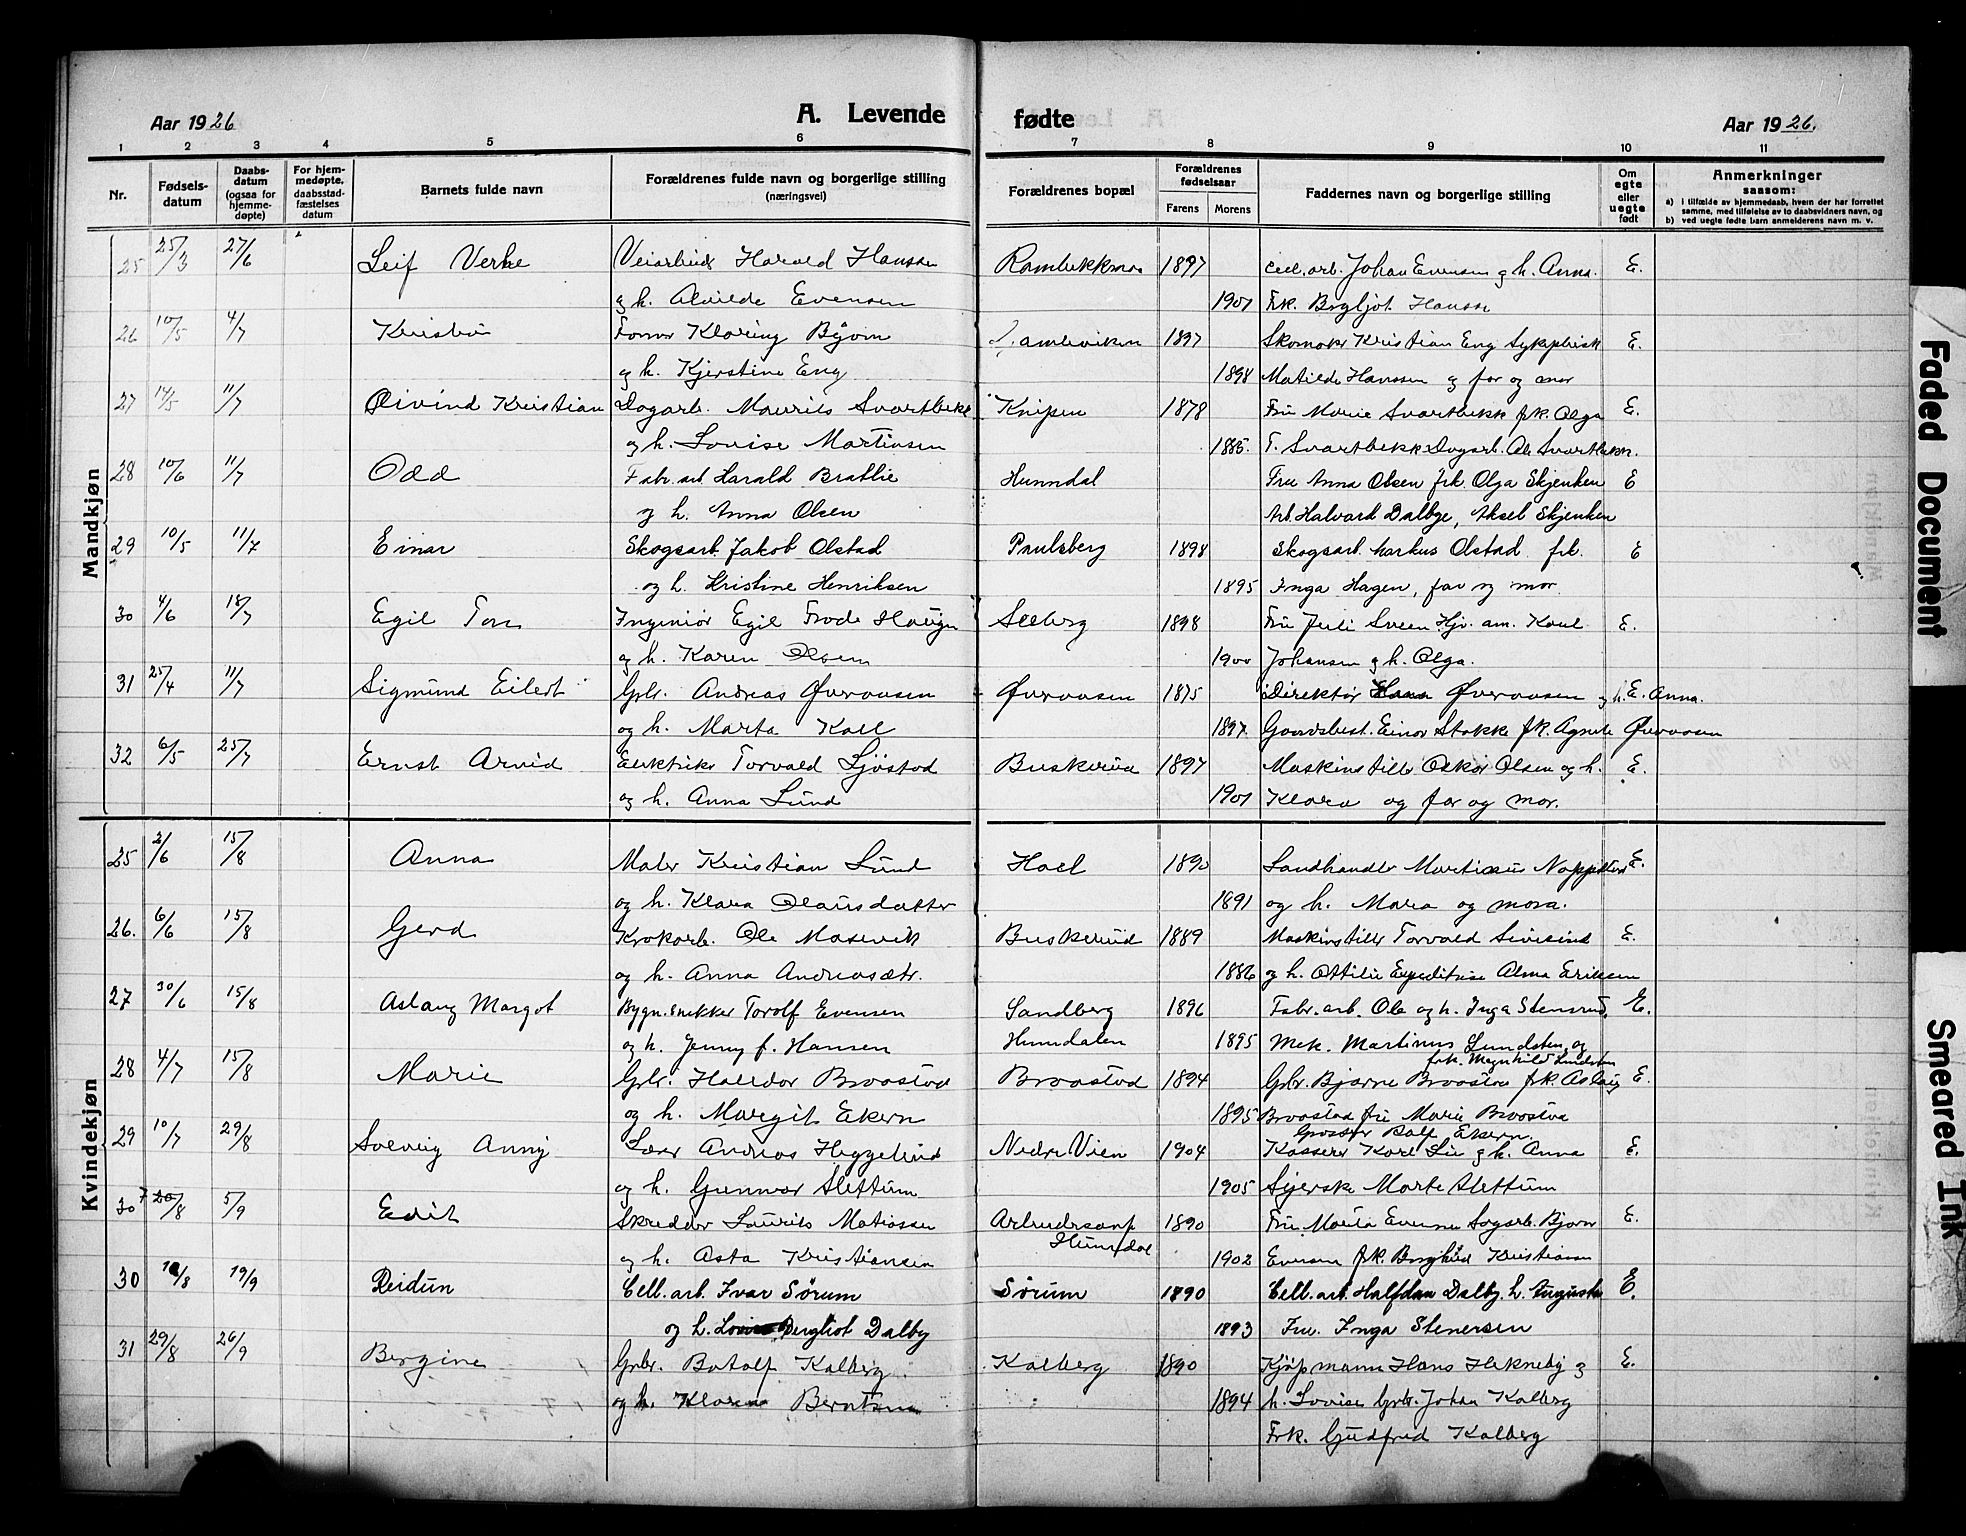 Aar 1926
A. Levende
fødte
Aar 1926.
1 2 3 4 5 6 7 8 9 10 11
Nr.
Fødsels-
datum
Daabs-
datum
(ogsaa for
hjemme-
døpte)
For hjem-
medøpte,
daabsstad-
fæstelses
datum
Barnets fulde navn
Forældrenes fulde navn og borgerlige stilling
(næringsvei)
Forældrenes bopæl
Forældrenes
fødselsaar
Farens
Morens
Faddernes navn og borgerlige stilling
Om
egte
eller
uegte
født
Anmerkninger
saasom:
a) i tilfælde av hjemmedaab, hvem der har forrettet
samme, med tilføielse av to daabsvidners navn, og
b) ved uegte fødte barn anmelderens navn m. v.
Mandkjøn
25 25/3 27/6 Leif Verhe Harald Hansen 1897 Johan Evensen og h. Anna. E.
og h. Alvilde Evensen 1901 Frk. Bergljot
26 10/5 4/7 Klaring 1897 Skomaker Kristian Eng E.
og h. Kjerstine Eng 1898 Matilde Hanssen og far og mor
27 14/5 11/7 Øivind Kristian Dagarb. Maurits Svartbekk Knipen 1878 Fru Marie Svartbekk frk. Olga E.
og h. Lovise Martinsen 1885. T. Svartbekk Dagarb. Ole Svartbekk.
28 10/6 11/7 Odd Fabr. arb. Harald Brattlie Hunndal Fru Anna Olsen frk. Olga Skjenken E
og h. Anna Olsen Arb. Halvard Dalbye, Aksel Skjenken
29 10/5 11/7 Einar Skogsarb. Jakob Olstad Paulsberg 1898 Skogsarb. Markus Olstad frk. E
og h. Kristine Henriksen 1895 Inga Hagen, far og mor.
30 4/6 18/7 Egil Ingeniør Egil Frode Seeberg 1898 Fru Sveen E.
og h. Karen Olsen 1900 Johansen og h. Olga.
31 25/4 11/7 Sigmund Eilert Gbr. Andreas Øveraasen Øveraasen 1875 Direktør Øveraasen og h. E. Anna.
og h. Marta 1897. Gaardsbest. Einar Stokke frk. Agnete Øveraasen
32 6/5 25/7 Ernst Arvid Torvald Sjøstad Buskerud 1897 Maskinstiller Oskar Olsen og h. E.
og h. Anna Lund 1901 Klara og far og mor.
Kvindekjøn
25 2/6 15/8 Anna Maler Kristian Lund Hoel 1890 E.
og h. Klara Olausdatter 1891 og h. Maria og mora.
26. 6/6 15/8 Gerd Krokarb. Ole Masevik Buskerud 1889 Maskinstiller Torvald E.
og h. Anna Andreasdtr. 1886 og h. Ottilie Expeditrise Alma Eriksen
27 30/6 15/8 Aslaug Margot Bygn. snekker Torolf Evensen Sandberg 1896 Fabr. arb. Ole og h. Inga Stensrud, E.
og h. Jenny f. Hansen Hunndalen 1895 Mek. Martinus Lundsten, og
frk. Magnhild Lundsten
28 4/7 15/8 Marie Gbr. Halvdor Braastad Braastad 1894 Gbr. Bjarne Braastad frk. Aslaug E.
og h. Margit Ekern 1895 Braastad fru Marie Braastad
Grosser Rolf Ekern
29 10/7 29/8 Solveig Anny Lærer Andreas Heggelund Nedre Vien 1904 Kasserer Karl Lie og h. Anna E.
og h. Gunvor Slettum 1905 Syerske Marte Slettum
30 7 20/8 5/9 Edit Skredder Laurits Matiassen 1890 Fru Evensen Sagarb. Bjarne E.
Hunndal
og h. Asta Kristiansen 1902 Evensen frk. Borghild Kristiansen
30 12/8 19/9 Reidun Cell. arb. Ivar Sørum Sørum 1890 Cell. arb. Halfdan Dalby. h. Augusta E.
og h. Bergliot Dalby 1893 Fru. Inga Stenersen
31 29/8 26/9 Bergine Gbr. Botolf Kalberg Kalberg 1890 Kjøpmann Hans Heksneby og E.
og h. Klara Berntsen 1894 h. Lovise Gbr. Johan Kalberg
Frk. Gudfrid Kalberg
Faded Document
Smeared Ink